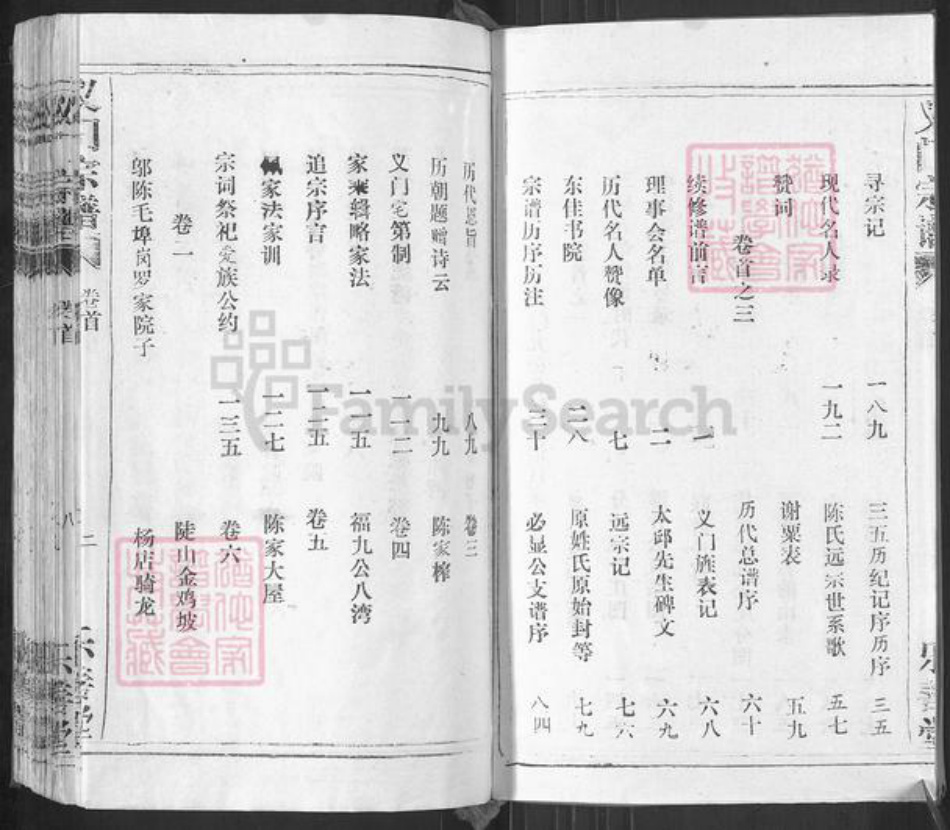 寻宗记 一八九
现代名人录 一九二
赞词
卷首之三
续修谱前言 一
理事会名单 二
历代名人赞像 七
东佳书院 二八
宗谱历序历注 三十
三五历纪记序历序 三五
陈氏远宗世系歌 五七
谢粟表 五九
历代总谱序 六十
义门旌表记 六八
太邱先生碑文 六九
远宗记 七六
原姓氏原始封等 七九
必显公支谱序 八四
历代恩旨 八九
历朝题赠诗云 九九
义门宅第制 一一二
家乘辑略家法 一一五
追宗序言 一二五
家法家训 一二七
宗词祭祀爱族公约 一三五
卷二
邬陈毛埠岗罗家院子
卷三
陈家榨
卷四
福九公八湾
卷五
陈家大屋
卷六
陡山金鸡坡
杨店骑龙
义门宗谱
卷首
八
二
乐善堂
FamilySearch